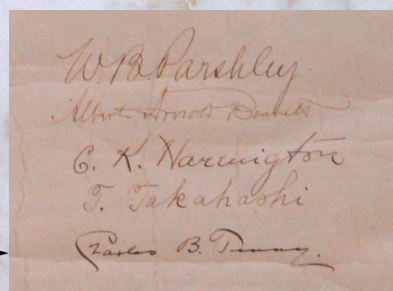 W. B. Parshley.
Albert Arnold Bennett
C. K. Harrington
T. Takahashi
Charles B. Tenny.